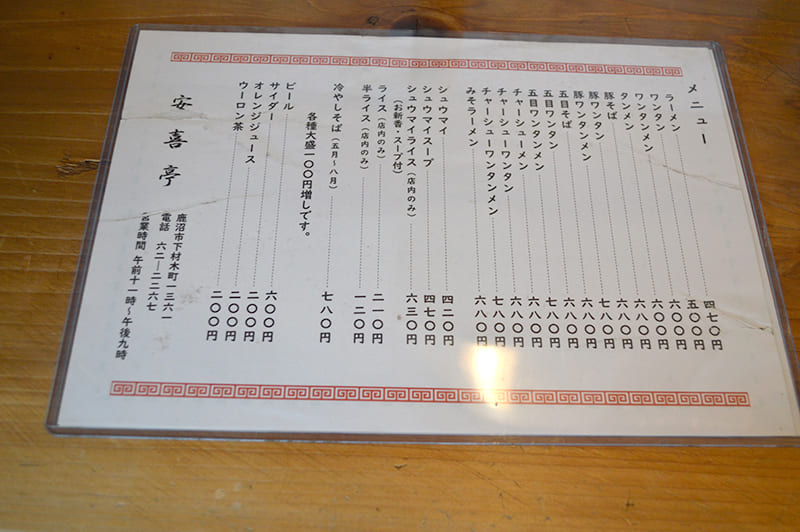 メニュー
ラーメン 四七〇円
ワンタン 五〇〇円
ワンタンメン 六〇〇円
タンメン 六〇〇円
豚そば 六八〇円
豚ワンタン 六八〇円
豚ワンタンメン 七八〇円
五目そば 六八〇円
五目ワンタン 六八〇円
五目ワンタンメン 七八〇円
チャーシューメン 六八〇円
チャーシューワンタン 六八〇円
チャーシューワンタンメン 七八〇円
みそラーメン 六八〇円
シュウマイ 四二〇円
シュウマイスープ 四七〇円
シュウマイライス(店内のみ) 六三〇円
(お新香・スープ付)
ライス(店内のみ) 二一〇円
半ライス(店内のみ) 一二〇円
冷やしそば(五月〜八月) 七八〇円
各種大盛一〇〇円増しです。
ビール 六〇〇円
サイダー 二〇〇円
オレンジジュース 二〇〇円
ウーロン茶 二〇〇円
安喜亭
鹿沼市下村木町一三六一
電話 六二―二二六七
営業時間 午前十一時〜午後九時